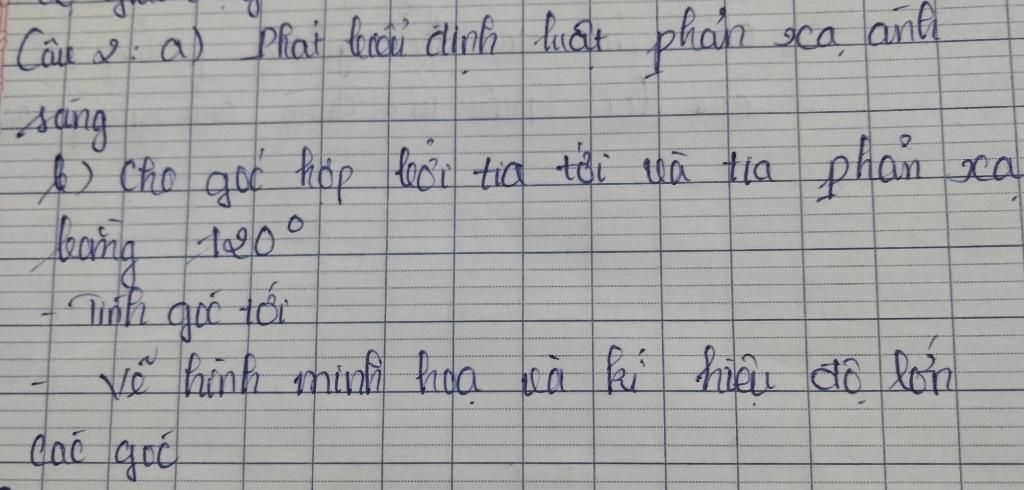 Câu 2: a) Phát biểu định luật phản xạ ánh
sáng
b) Cho góc hợp bởi tia tới và tia phản xạ
bằng 120°
- Tính góc tới
- Vẽ hình minh hoạ và kí hiệu độ lớn
các góc